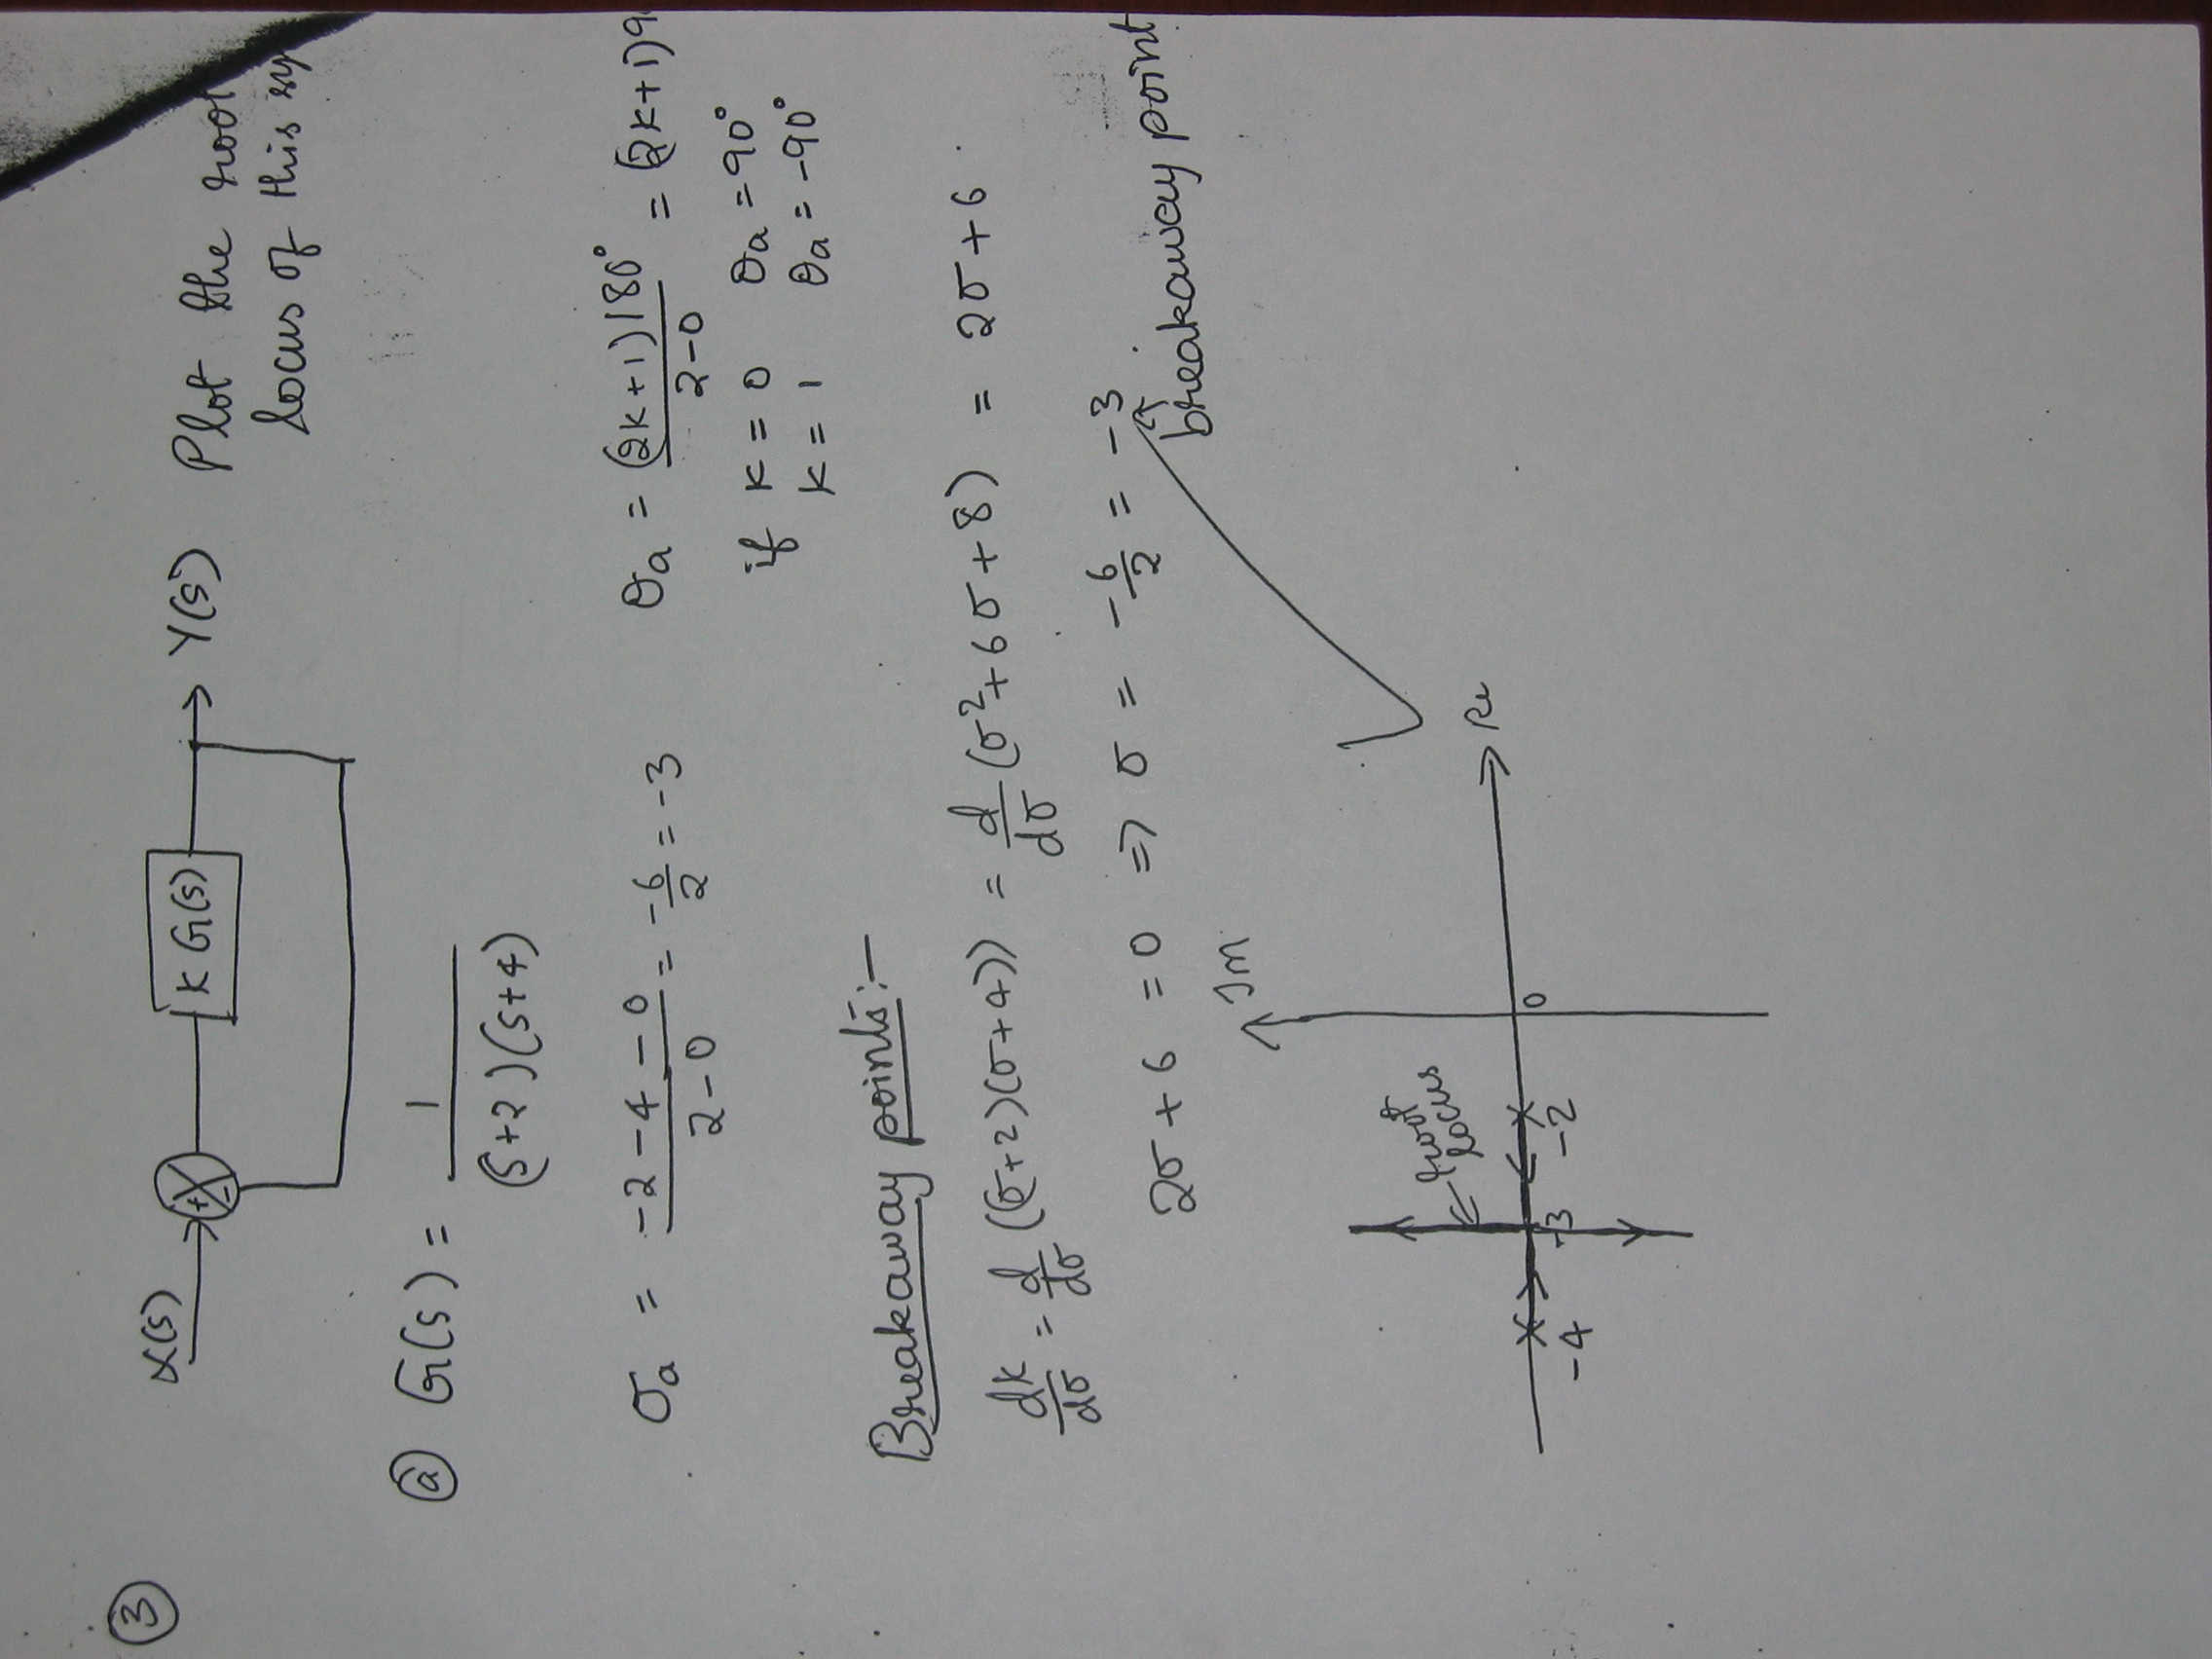 ③
X(s) + - K G(s) Y(s) Plot the root
locus of this sy
ⓐ G(s) = 1 / (s+2)(s+4)
σa = (-2-4-0)/(2-0) = -6/2 = -3 θa = (2K+1)180°/(2-0) = (2K+1)9
if K=0 θa = 90°
K=1 θa = -90°
Breakaway points:-
dK/dσ = d/dσ ((σ+2)(σ+4)) = d/dσ (σ²+6σ+8) = 2σ+6
2σ+6 = 0 => σ = -6/2 = -3
breakaway point
Im
root
locus
Re
-4 -3 -2 0